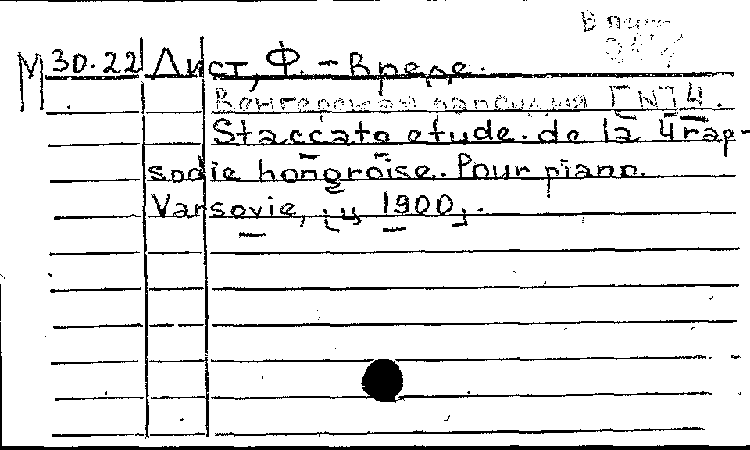 В пер
М 30.22 Лист, Ф. – Вреде.
Венгерская рапсодия [N] 4.
Staccato etude de la 4 rap-
sodie hongroise. Pour piano.
Varsovie, [ц 1900].